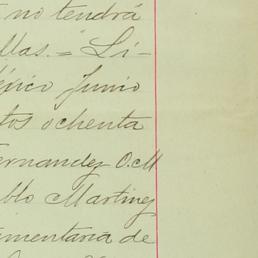 no tendrá
llas. = Li-
éxico Junio
tos ochenta
ernandez O.M
blo Martinez
mentaria de